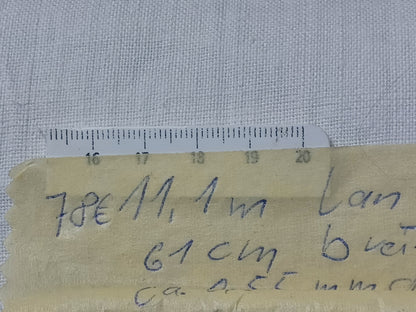 16 17 18 19 20
78€ 11,1m Lan
61cm brei
ca 0,55 mm